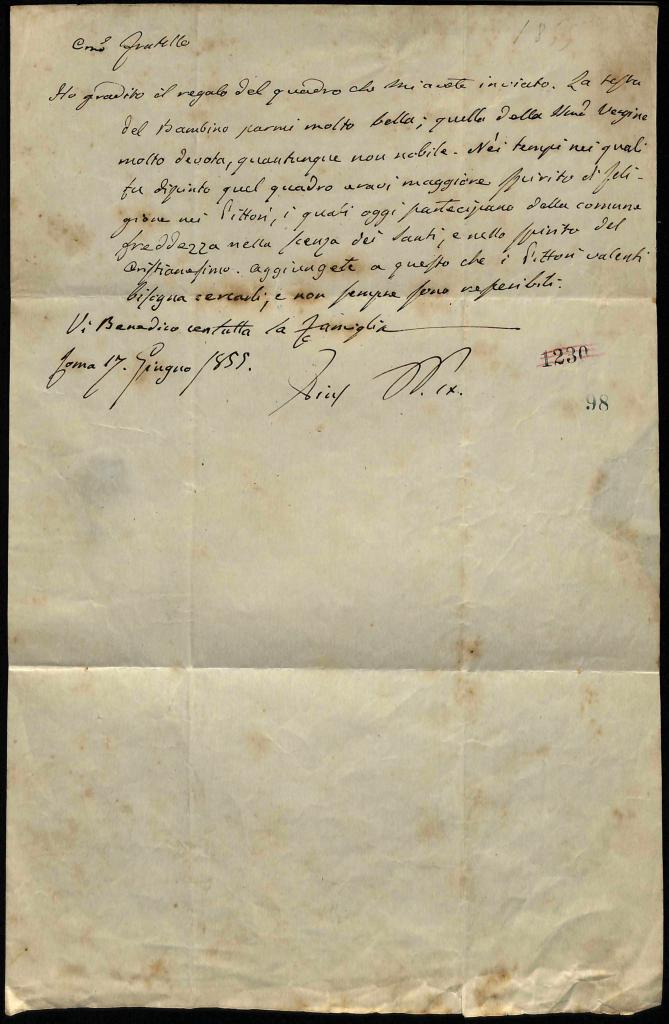 Cmō Fratello
Ho gradito il regalo del quadro che mi avete inviato. La testa
del Bambino parmi molto bella; quella della Smā Vergine
molto devota, quantunque non nobile. Nei tempi nei quali
fu dipinto quel quadro eravi maggiore spirito di Reli-
gione nei Pittori, i quali oggi partecipano della comune
freddezza nella scenza dei Santi, e nello spirito del
Cristianesimo. Aggiungete a questo che i Pittori valenti
bisogna cercarli, e non sempre sono reperibili.
Vi Benedico con tutta la Famiglia
Roma 17. Giugno 1855.
Pius P. IX.
1230
98